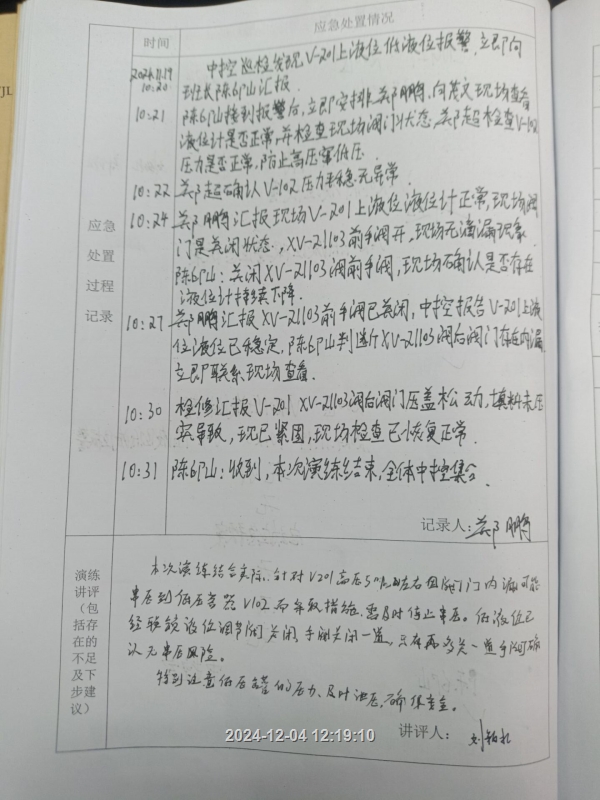 应急处置情况
时间
应急处置过程记录
2024.11.19
10:20
中控巡检发现V-201上液位低液位报警,立即向
班长陈炉山汇报
10:21
陈炉山接到报警后,立即安排郑鹏、向茂文现场查看
液位计是否正常,并检查现场阀门状态,郑超检查V-102
压力是否正常,防止高压窜低压.
10:22
郑超确认V-102压力平稳无异常.
10:24
郑鹏汇报现场V-201上液位液位计正常,现场阀
门是关闭状态,XV-21103前手阀开,现场无滴漏现象.
陈炉山:关闭XV-21103阀前手阀,现场确认是否存在
液位计持续下降.
10:27
郑鹏汇报XV-21103前手阀已关闭,中控报告V-201上液
位液位已稳定,陈炉山判断XV-21103阀后阀门存在内漏
立即联系现场查看.
10:30
检修汇报V-201 XV-21103阀后阀门压盖松动,填料未压
实导致,现已紧固,现场检查已恢复正常.
10:31
陈炉山:收到,本次演练结束,全体中控集合.
记录人:郑鹏
演练讲评(包括存在的不足及下步建议)
本次演练结合实际,针对V201高压
串压到低压容器V102而采取措施,需及时停止串压。低液位已
经联锁液位调节阀关闭,手阀关闭一道,只有再多关一道手阀可确
认无串压风险。
特别注意低压罐的压力、及时泄压,确保安全。
讲评人:
2024-12-04 12:19:10